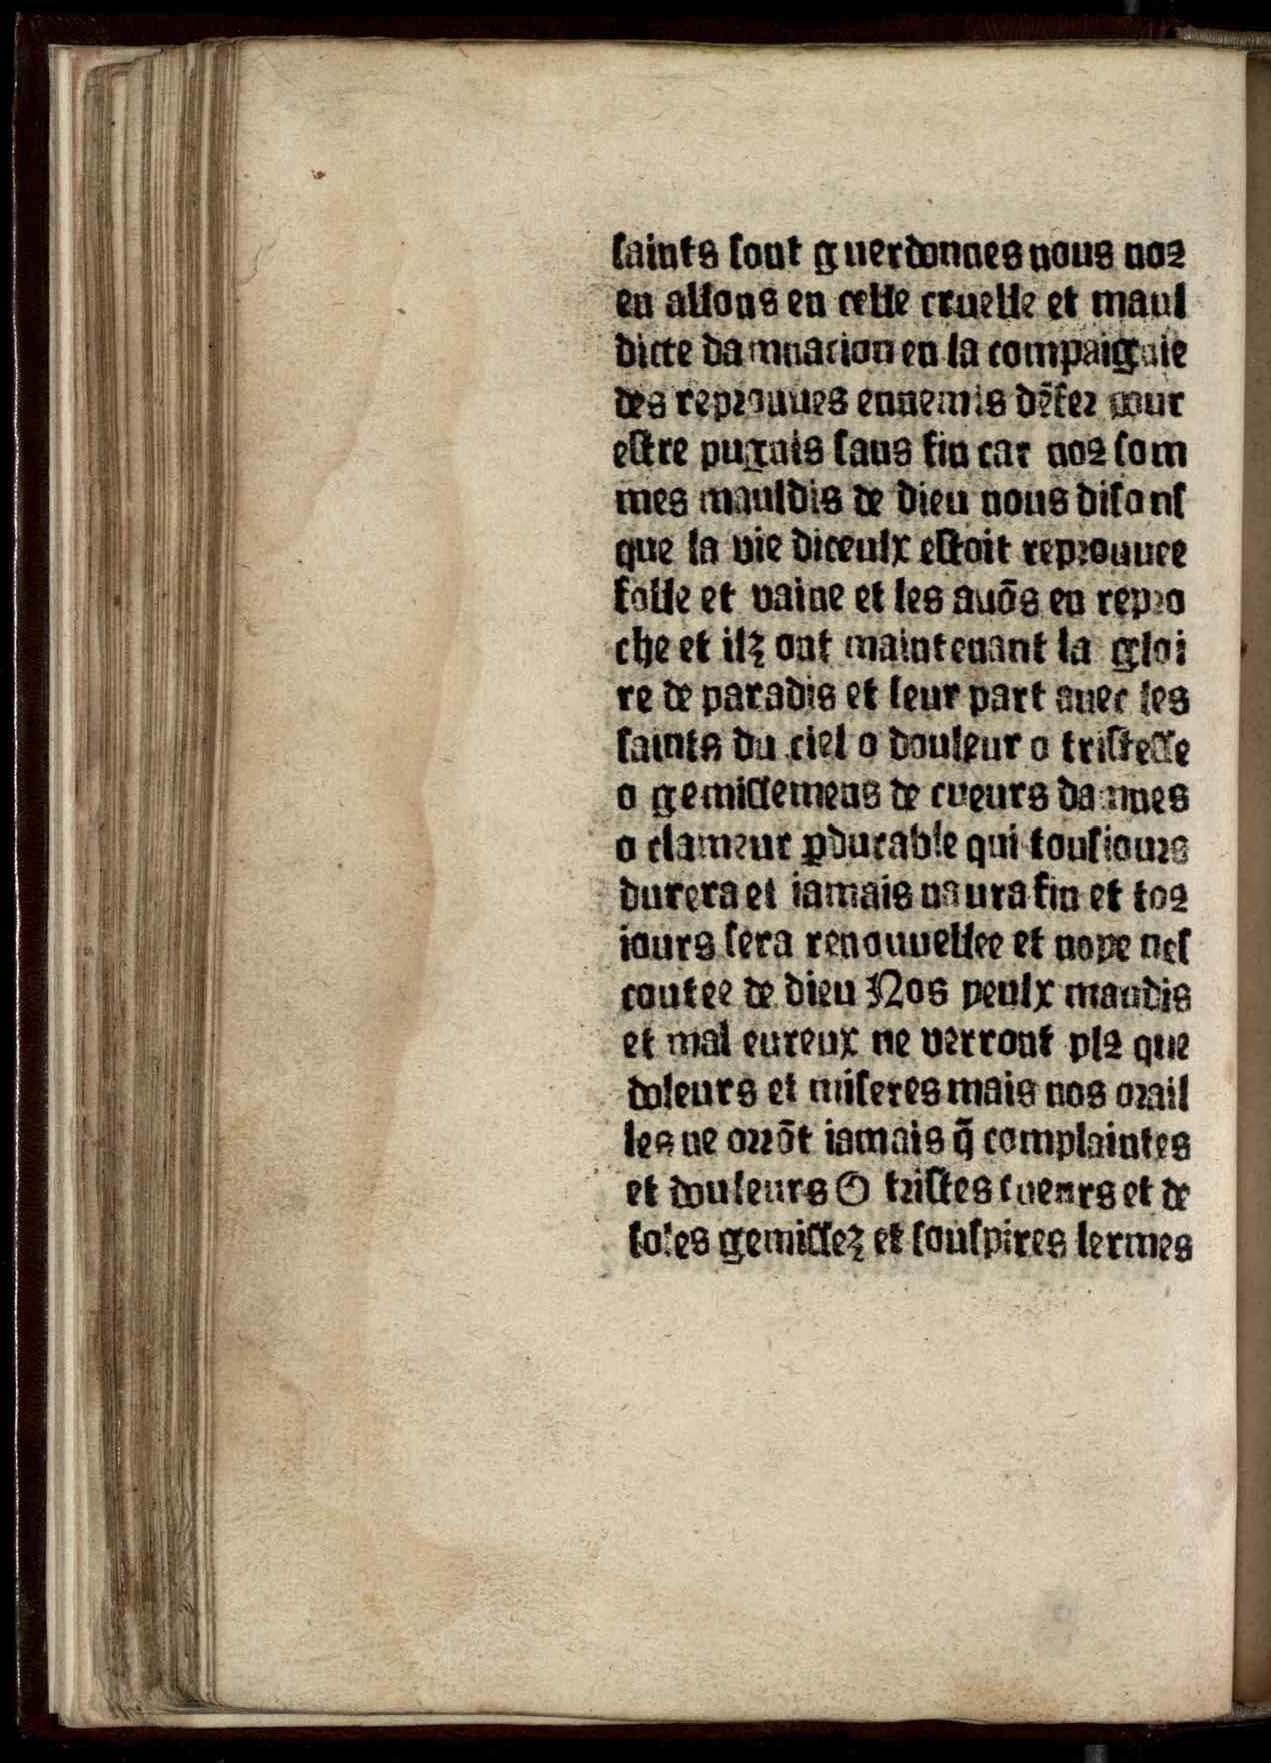 ſaints ſont guerdonnes nous noꝰ
en allons en celle cruelle et maul
dicte damnacion en la compaignie
des reprouues ennemis dẽfer pour
eſtre pugnis ſans fin car noꝰ ſom
mes mauldis de dieu nous diſonſ
que la vie diceulx eſtoit reprouuee
folle et vaine et les auõs en repro
che et ilz ont maintenant la gloi
re de paradis et leur part auec les
ſaints du ciel o douleur o triſteſſe
o gemiſſemens de cueurs dannes
o clameur ꝑdurable qui touſiours
durera et iamais naura fin et toꝰ
iours ſera renouuellee et none neſ
coutee de dieu Nos yeulx maudis
et mal eureux ne verront plꝰ que
doleurs et miſeres mais nos orail
les ne orrõt iamais q̃ complaintes
et douleurs O triſtes cueurs et de
ſoles gemiſſez et ſouſpires lermes